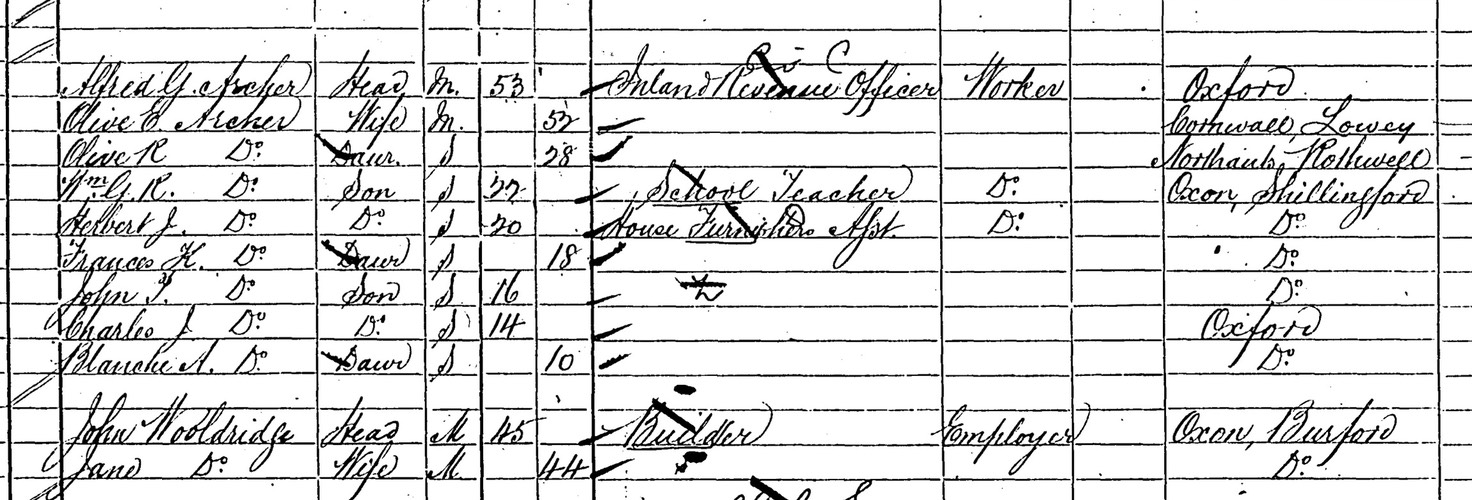 Civ C
Alfred G. Archer Head M. 53 Inland Revenue Officer Worker Oxford
Olive E. Archer Wife M. 52 Cornwall, Lowey
Olive R Do. Daur. S 28 Northants, Rothwell
Wm. G. R. Do. Son S 22 School Teacher Do. Oxon, Shillingford
Herbert J. Do. Do. S 20 House Furnishers Asst. Do. Do.
Frances K. Do. Daur S 18 Do.
John P. Do. Son S 16 Do.
Charles J Do. Do. S 14 Oxford
Blanche A. Do. Daur S 10 Do.
John Wooldridge Head M 45 Builder Employer Oxon, Burford
Jane Do. Wife M. 44 Do.